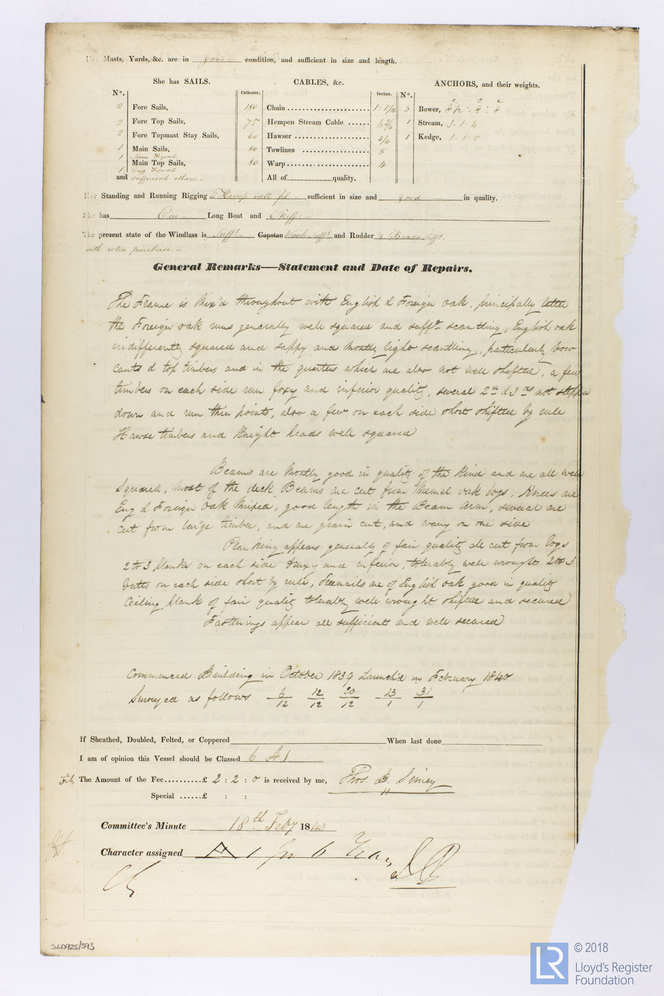 Her Masts, Yards, &c. are in good condition, and sufficient in size and length.
She has SAILS.
CABLES, &c.
ANCHORS, and their weights.
N°.
Fathoms.
Inches.
N°.
2 Fore Sails,
180 Chain 1 1/16
3 Bower,
2 Fore Top Sails,
75 Hempen Stream Cable
1 Stream, 3-1-4
2 Fore Topmast Stay Sails,
60 Hawser
1 Kedge, 1-1-0
1 Main Sails,
80 Towlines 5
1 Main Top Sails,
80 Warp 4
and sufficient others
All of quality.
Her Standing and Running Rigging Hemp well fit sufficient in size and good in quality.
She has One Long Boat and Skiff
The present state of the Windlass is Sufft Capstan and Rudder
with extra purchase
General Remarks—Statement and Date of Repairs.
The Frame is Mix'd throughout with English & Foreign oak, principally latter
the Foreign oak runs generally well squared and sufft scantling, English oak
indifferently squared and sappy and mostly light scantling, particularly bow
cants & top timbers and in the quarters which are also not well shifted, a few
timbers on each side run foxy and inferior quality, several 2nd & 3rd not
down and run thin points, also a few on each side short shifted by rule
Hawse timbers and Knight heads well squared
Beams are mostly good in quality of the kind and are all well
Squared, most of the deck Beams are cut from Memel oak logs, Knees are
Eng & Foreign Oak Mixed, good length in the Beam arm, several are
cut from large timber, and are grain cut, and wany on one side
Planking appears generally of fair quality all cut from logs
2 to 3 planks on each side foxy and inferior, tolerably well wrought 2 to 3
butts on each side short by rule, Treenails are of English oak good in quality
Ceiling plank of fair quality tolerably well wrought shifted and secured
Fastnings appear all sufficient and well secured
Commenced Building in October 1839 Launch'd in February 1840
Surveyed as follows 6/12 12/12 20/12 13/1 31/1
If Sheathed, Doubled, Felted, or Coppered When last done
I am of opinion this Vessel should be Classed 6 A 1
The Amount of the Fee..........£ 2 : 2 : 0 is received by me, Thos B. Simey
Special ......£ : :
Committee's Minute 18th Feby 1840
Character assigned A 1 for 6 Years
SLD925/393
LR
© 2018
Lloyd's Register
Foundation